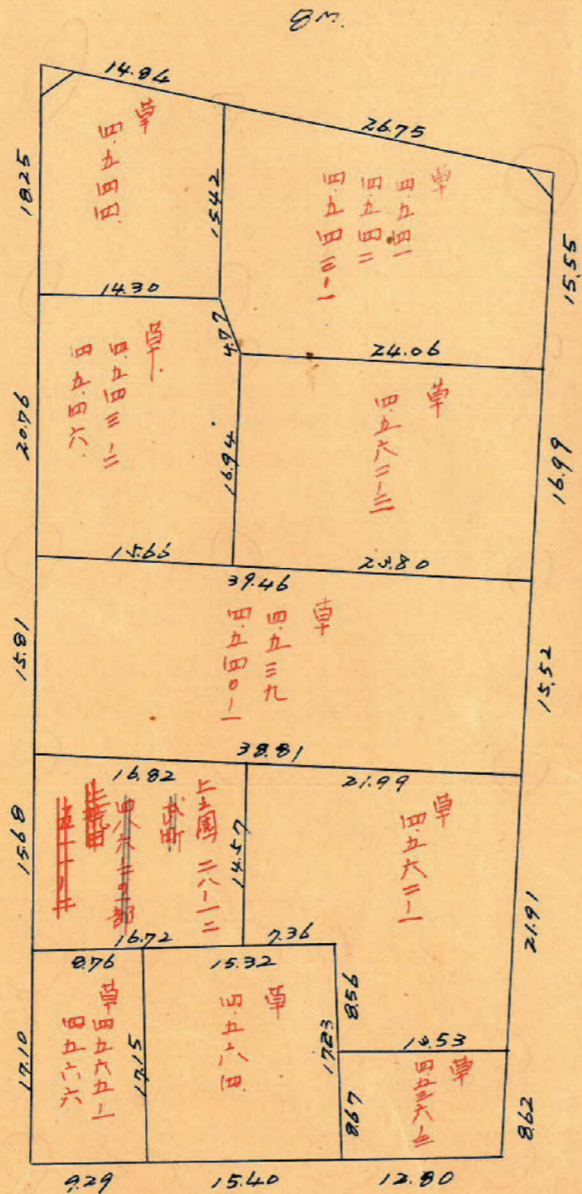 8m.
14.84
26.75
18.25
草
四.五四四
15.42
草
四.五四一
四.五四二
四.五四三-一
15.55
14.30
4.77
24.06
20.76
草
四.五四三-二
四.五四六
16.94
草
16.99
15.66
23.80
39.46
15.81
草
四.五三九
四.五四〇-一
15.52
38.81
16.82
21.99
15.68
二八-一二
14.57
草
四.五六二-一
21.91
16.72
7.36
8.76
15.32
8.56
17.10
草
四五六五-一
四五六六
17.15
草
四.五六四
17.23
18.53
8.67
草
8.62
9.29
15.40
12.80